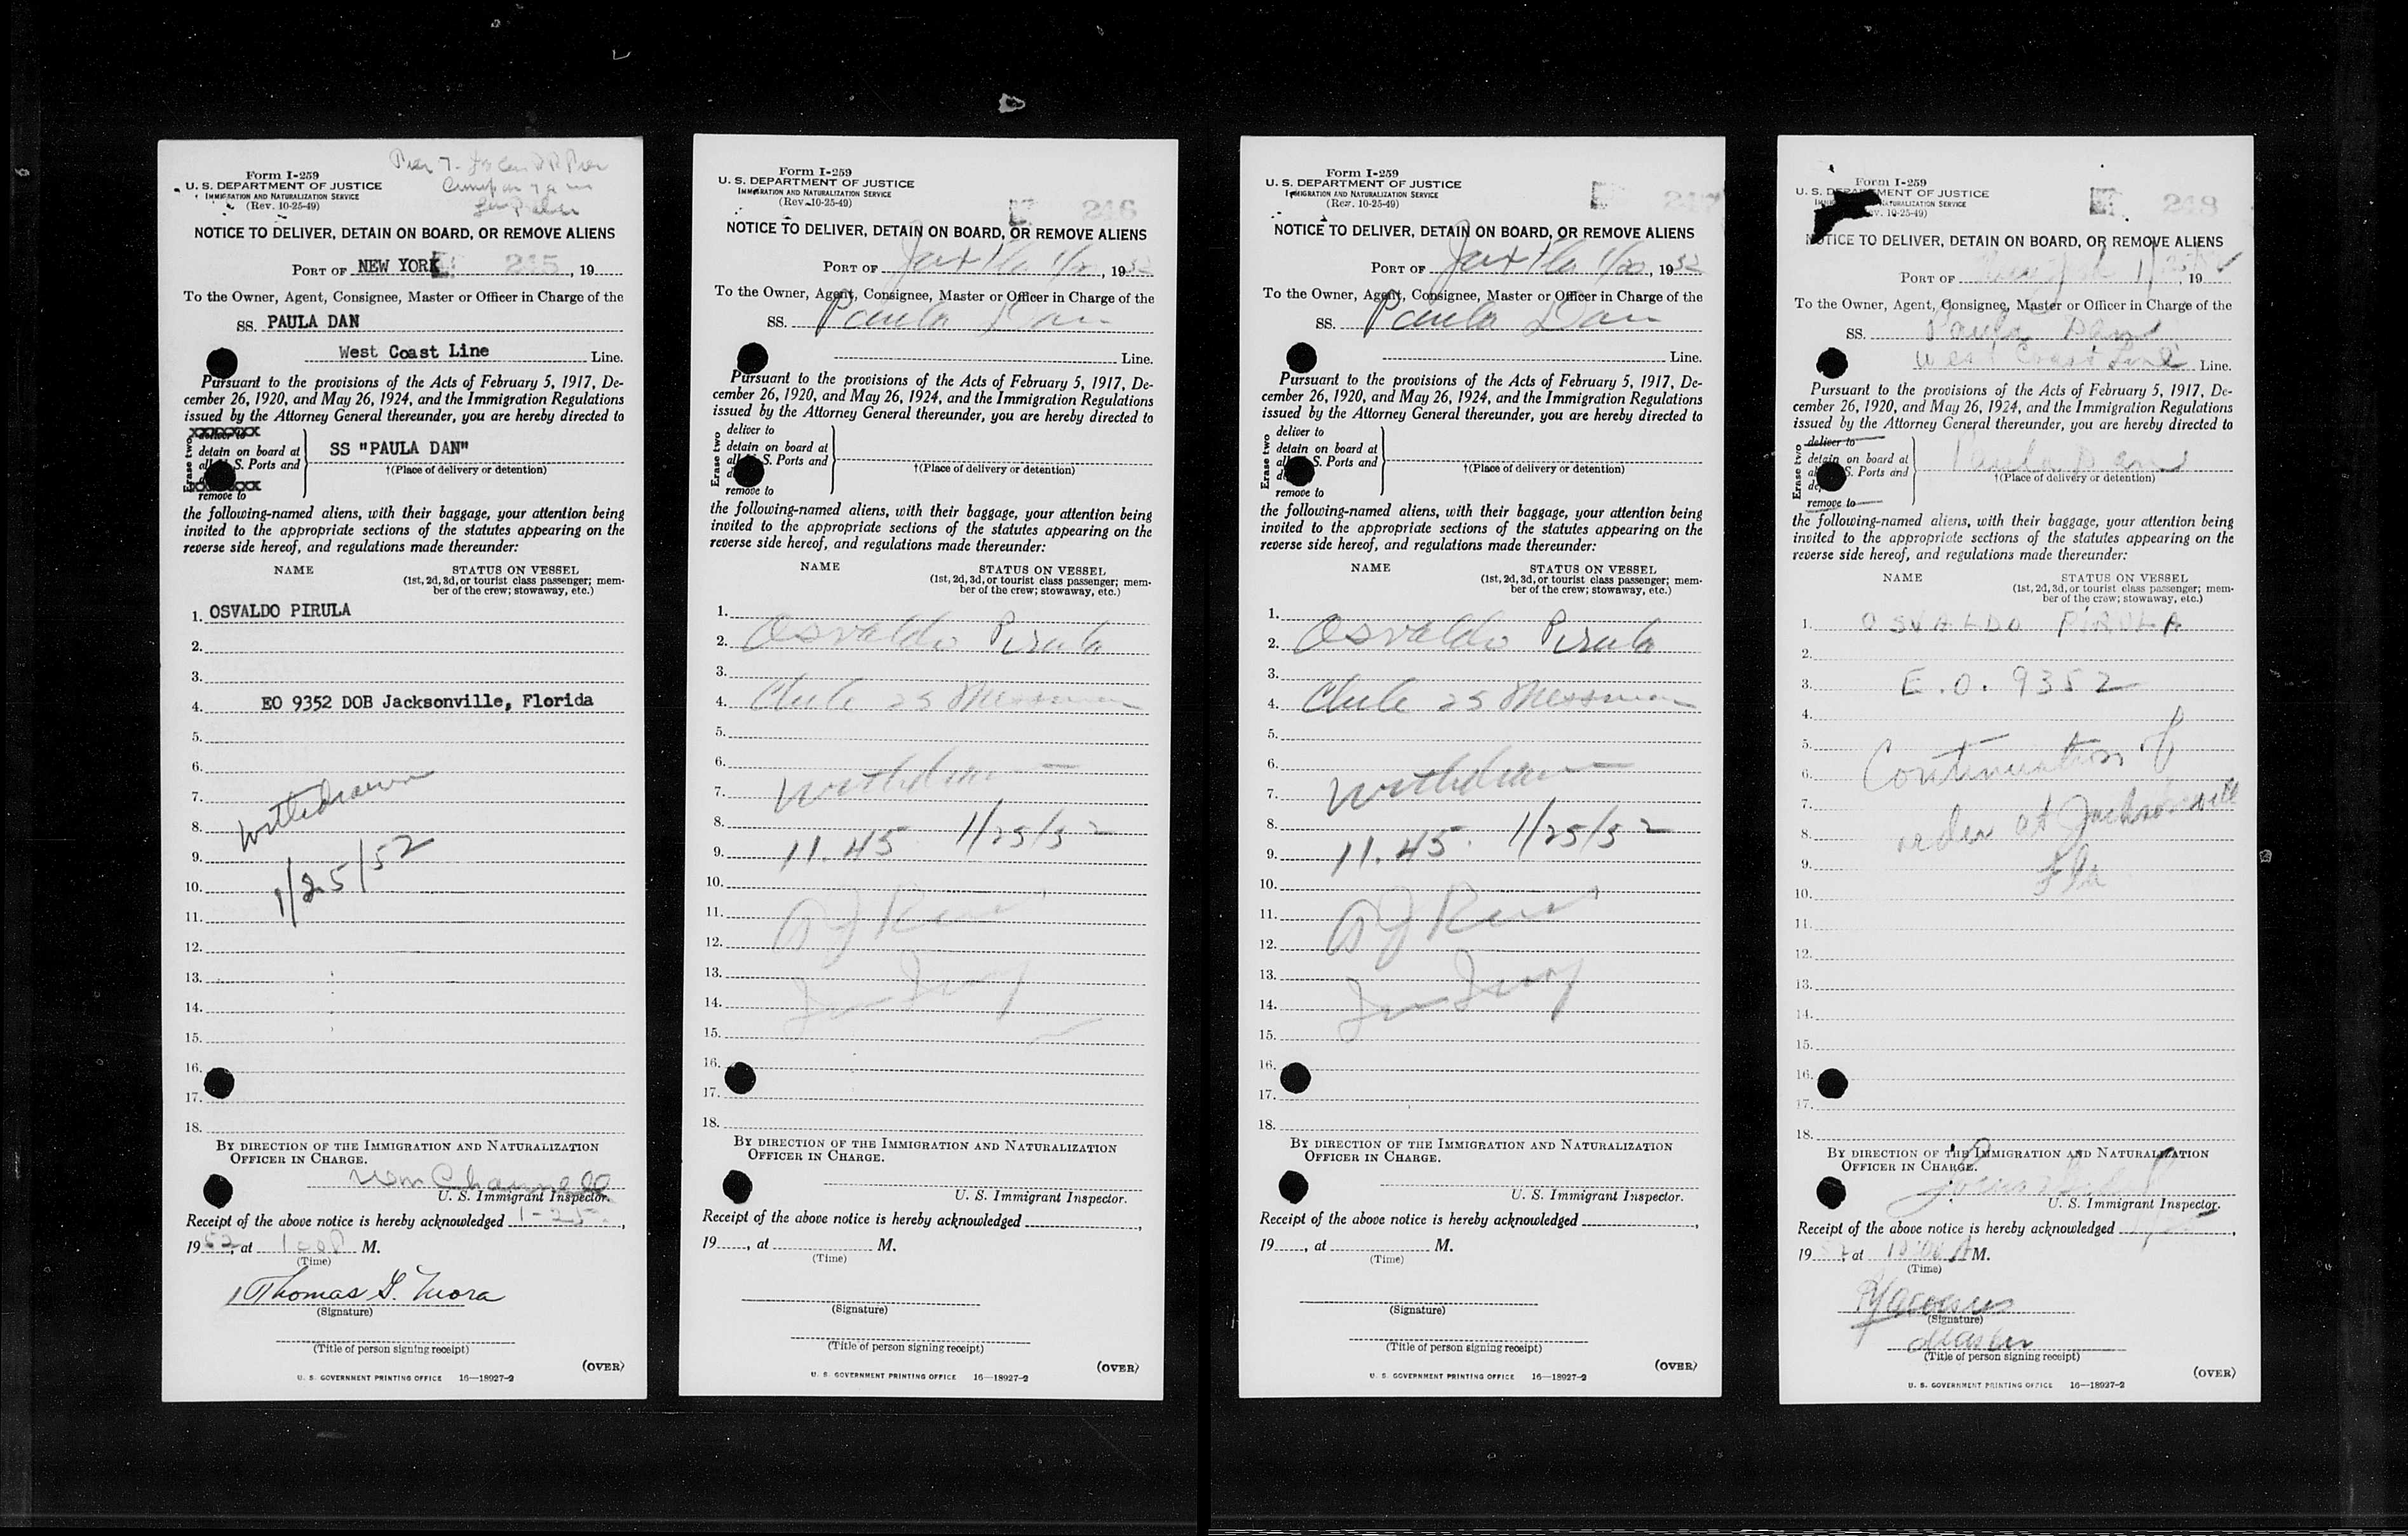 Form I-259
U. S. DEPARTMENT OF JUSTICE
IMMIGRATION AND NATURALIZATION SERVICE
(Rev. 10-25-49)
Pier 7.
NOTICE TO DELIVER, DETAIN ON BOARD, OR REMOVE ALIENS
PORT OF NEW YORK 245, 19
To the Owner, Agent, Consignee, Master or Officer in Charge of the
SS. PAULA DAN
West Coast Line Line.
Pursuant to the provisions of the Acts of February 5, 1917, De-
cember 26, 1920, and May 26, 1924, and the Immigration Regulations
issued by the Attorney General thereunder, you are hereby directed to
Erase two
deliver to
detain on board at
all S. Ports and
remove to
SS "PAULA DAN"
†(Place of delivery or detention)
the following-named aliens, with their baggage, your attention being
invited to the appropriate sections of the statutes appearing on the
reverse side hereof, and regulations made thereunder:
NAME STATUS ON VESSEL
(1st, 2d, 3d, or tourist class passenger; mem-
ber of the crew; stowaway, etc.)
1. OSVALDO PIRULA
2.
3.
4. EO 9352 DOB Jacksonville, Florida
5.
6.
7. withdrawn
8.
9.
10. 1/25/52
11.
12.
13.
14.
15.
16.
17.
18.
BY DIRECTION OF THE IMMIGRATION AND NATURALIZATION
OFFICER IN CHARGE.
Wm Channell
U. S. Immigrant Inspector.
Receipt of the above notice is hereby acknowledged 1-25,
1952, at 1 00 P M.
(Time)
Thomas G. Mora
(Signature)
(Title of person signing receipt)
(OVER)
U. S. GOVERNMENT PRINTING OFFICE 16—18927-2
Form I-259
U. S. DEPARTMENT OF JUSTICE
IMMIGRATION AND NATURALIZATION SERVICE
(Rev. 10-25-49)
246
NOTICE TO DELIVER, DETAIN ON BOARD, OR REMOVE ALIENS
PORT OF Jax Fla 1/20, 1952
To the Owner, Agent, Consignee, Master or Officer in Charge of the
SS. Paula Dan
Line.
Pursuant to the provisions of the Acts of February 5, 1917, De-
cember 26, 1920, and May 26, 1924, and the Immigration Regulations
issued by the Attorney General thereunder, you are hereby directed to
Erase two
deliver to
detain on board at
all S. Ports and
remove to
†(Place of delivery or detention)
the following-named aliens, with their baggage, your attention being
invited to the appropriate sections of the statutes appearing on the
reverse side hereof, and regulations made thereunder:
NAME STATUS ON VESSEL
(1st, 2d, 3d, or tourist class passenger; mem-
ber of the crew; stowaway, etc.)
1.
2. Osvaldo Pirula
3.
4. Chile 25 Messman
5.
6.
7. withdrawn
8.
9. 11.45 1/25/52
10.
11.
12.
13.
14.
15.
16.
17.
18.
BY DIRECTION OF THE IMMIGRATION AND NATURALIZATION
OFFICER IN CHARGE.
U. S. Immigrant Inspector.
Receipt of the above notice is hereby acknowledged ,
19 , at M.
(Time)
(Signature)
(Title of person signing receipt)
(OVER)
U. S. GOVERNMENT PRINTING OFFICE 16—18927-2
Form I-259
U. S. DEPARTMENT OF JUSTICE
IMMIGRATION AND NATURALIZATION SERVICE
(Rev. 10-25-49)
247
NOTICE TO DELIVER, DETAIN ON BOARD, OR REMOVE ALIENS
PORT OF Jax Fla 1/20, 1952
To the Owner, Agent, Consignee, Master or Officer in Charge of the
SS. Paula Dan
Line.
Pursuant to the provisions of the Acts of February 5, 1917, De-
cember 26, 1920, and May 26, 1924, and the Immigration Regulations
issued by the Attorney General thereunder, you are hereby directed to
Erase two
deliver to
detain on board at
all S. Ports and
remove to
†(Place of delivery or detention)
the following-named aliens, with their baggage, your attention being
invited to the appropriate sections of the statutes appearing on the
reverse side hereof, and regulations made thereunder:
NAME STATUS ON VESSEL
(1st, 2d, 3d, or tourist class passenger; mem-
ber of the crew; stowaway, etc.)
1.
2. Osvaldo Pirula
3.
4. Chile 25 Messman
5.
6.
7. withdrawn
8.
9. 11.45. 1/25/52
10.
11.
12.
13.
14.
15.
16.
17.
18.
BY DIRECTION OF THE IMMIGRATION AND NATURALIZATION
OFFICER IN CHARGE.
U. S. Immigrant Inspector.
Receipt of the above notice is hereby acknowledged ,
19 , at M.
(Time)
(Signature)
(Title of person signing receipt)
(OVER)
U. S. GOVERNMENT PRINTING OFFICE 16—18927-2
Form I-259
U. S. DEPARTMENT OF JUSTICE
NATURALIZATION SERVICE
10-25-49)
248
NOTICE TO DELIVER, DETAIN ON BOARD, OR REMOVE ALIENS
PORT OF New York , 19
To the Owner, Agent, Consignee, Master or Officer in Charge of the
SS. Paula Dan
West Coast Line Line.
Pursuant to the provisions of the Acts of February 5, 1917, De-
cember 26, 1920, and May 26, 1924, and the Immigration Regulations
issued by the Attorney General thereunder, you are hereby directed to
Erase two
deliver to
detain on board at
S. Ports and
remove to
Paula Dan
†(Place of delivery or detention)
the following-named aliens, with their baggage, your attention being
invited to the appropriate sections of the statutes appearing on the
reverse side hereof, and regulations made thereunder:
NAME STATUS ON VESSEL
(1st, 2d, 3d, or tourist class passenger; mem-
ber of the crew; stowaway, etc.)
1. OSVALDO PIRULA
2.
3. E.O. 9352
4.
5.
6. Continuation of
7.
8. order at Jacksonville
9.
10. Fla
11.
12.
13.
14.
15.
16.
17.
18.
BY DIRECTION OF THE IMMIGRATION AND NATURALIZATION
OFFICER IN CHARGE.
U. S. Immigrant Inspector.
Receipt of the above notice is hereby acknowledged ,
19 at A M.
(Time)
(Signature)
Master
(Title of person signing receipt)
(OVER)
U. S. GOVERNMENT PRINTING OFFICE 16—18927-2